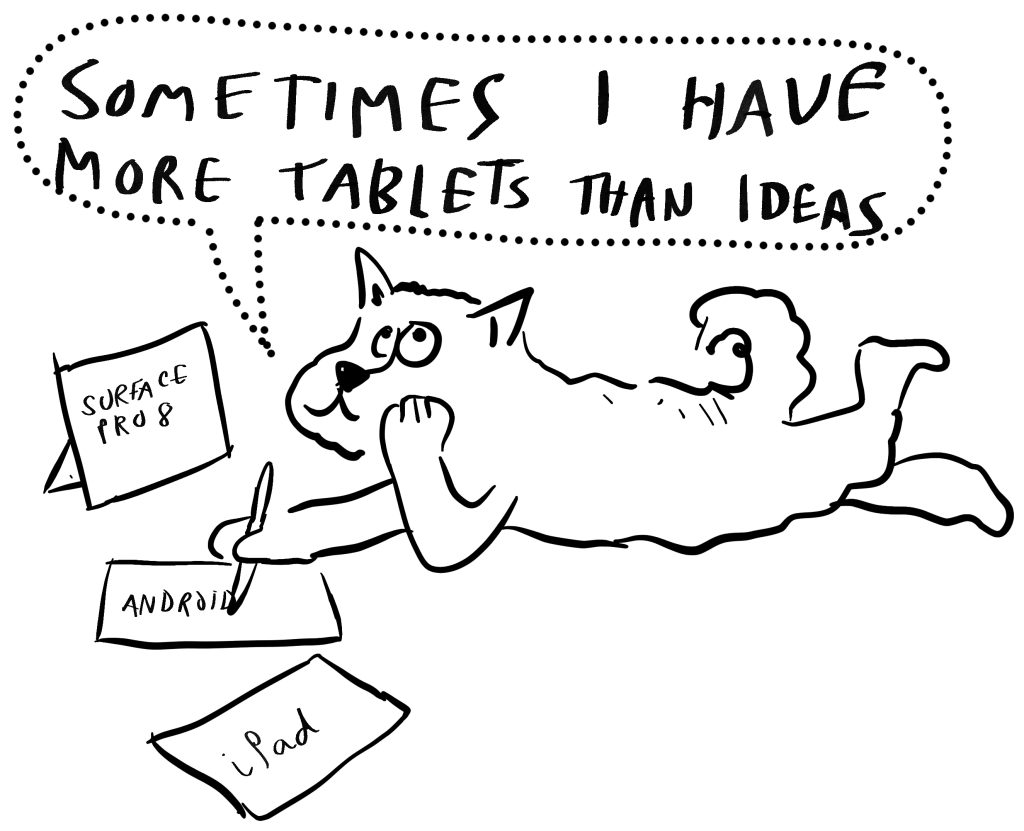 SOMETIMES I HAVE
MORE TABLETS THAN IDEAS
SURFACE
PRO 8
ANDROID
iPad